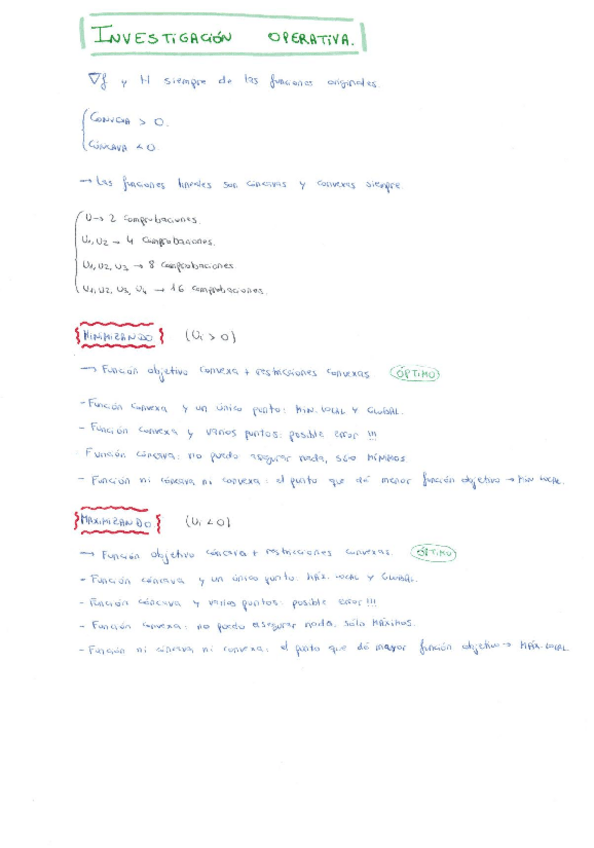 INVESTIGACIÓN OPERATIVA.
∇f y H siempre de las funciones originales.
CONVEXA > 0.
CÓNCAVA < 0.
→ Las funciones lineales son cóncavas y convexas siempre.
U → 2 comprobaciones.
U1, U2 → 4 comprobaciones.
U1, U2, U3 → 8 comprobaciones
U1, U2, U3, U4 → 16 comprobaciones.
MINIMIZANDO (Ui > 0)
→ Función objetivo convexa + restricciones convexas. ÓPTIMO
- Función convexa y un único punto: MIN. LOCAL Y GLOBAL.
- Función convexa y varios puntos: posible error !!!
Función cóncava: no puedo asegurar nada, sólo MÍNIMOS
- Función ni cóncava ni convexa: el punto que dé menor función objetivo → MIN LOCAL.
MAXIMIZANDO (Ui < 0)
→ Función objetivo cóncava + restricciones convexas. ÓPTIMO
- Función cóncava y un único punto: MÁX. LOCAL Y GLOBAL.
- Función cóncava y varios puntos: posible error !!!
- Función convexa: no puedo asegurar nada, sólo MÁXIMOS.
- Función ni cóncava ni convexa: el punto que dé mayor función objetivo → MÁX. LOCAL